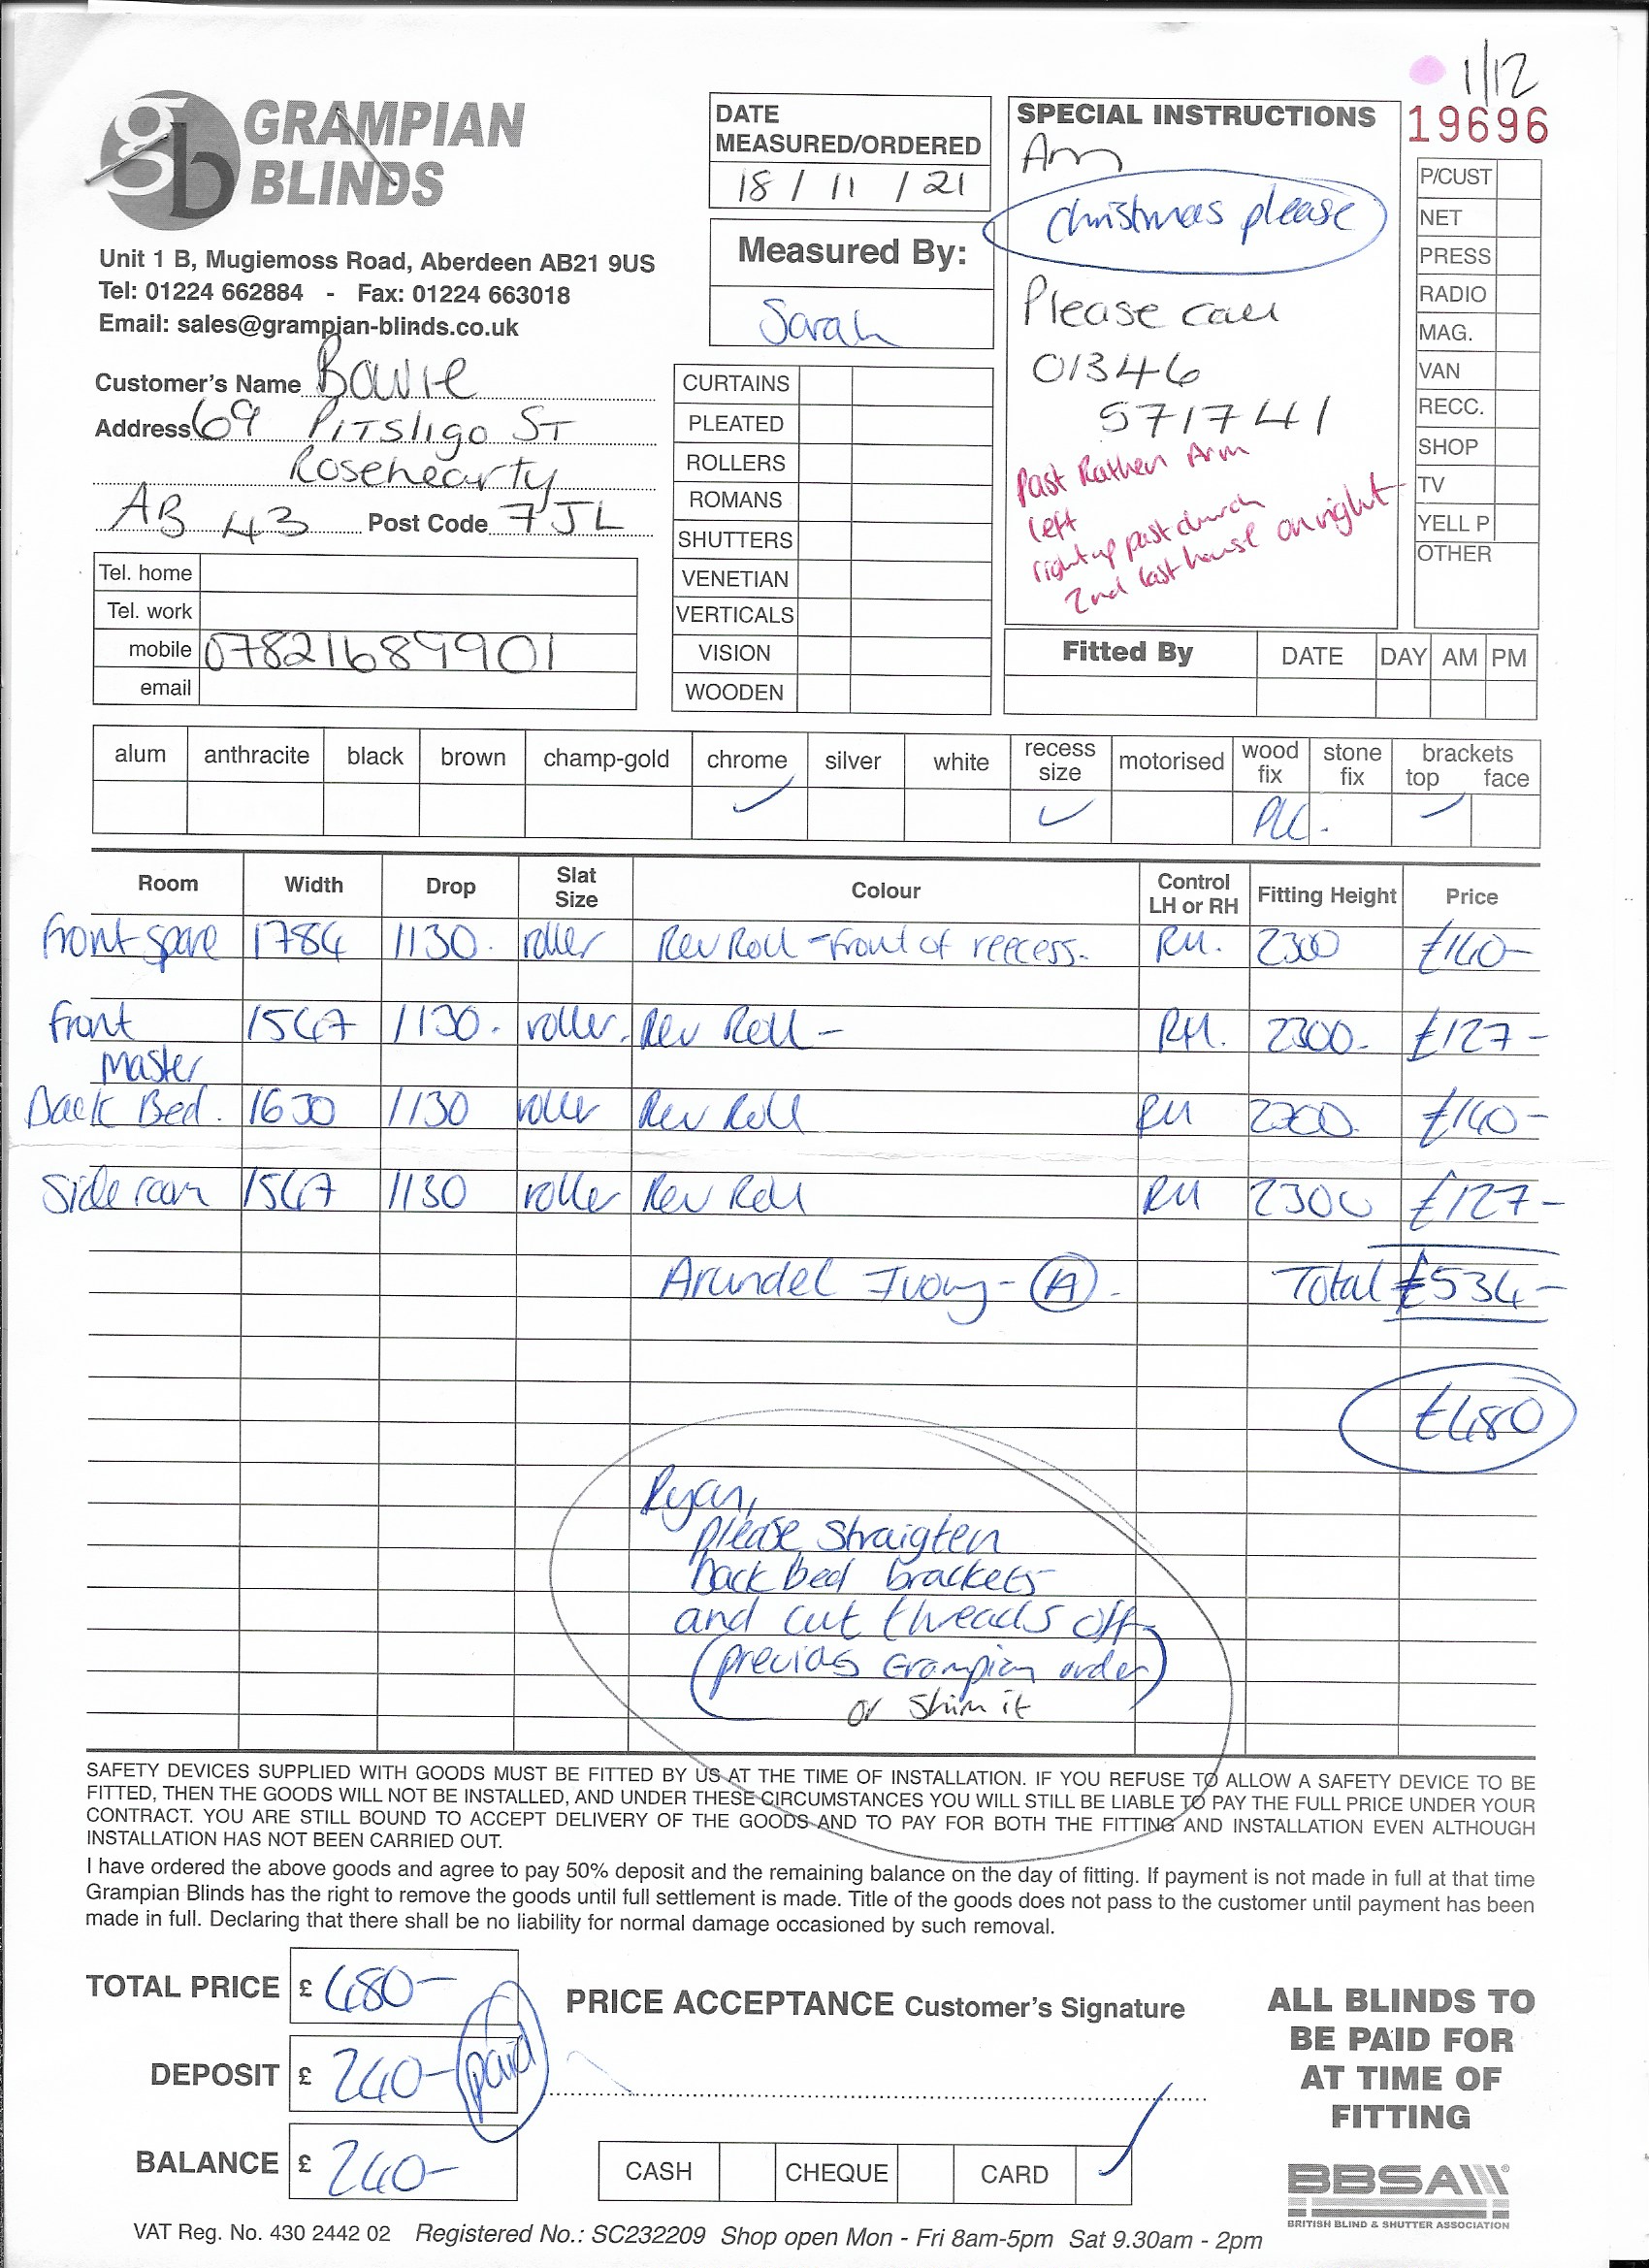 1/12
19696
gb GRAMPIAN BLINDS
Unit 1 B, Mugiemoss Road, Aberdeen AB21 9US
Tel: 01224 662884 - Fax: 01224 663018
Email: sales@grampian-blinds.co.uk
Customer's Name Bowie
Address 69 Pitsligo St
Rosehearty
AB 43 Post Code 7JL
Tel. home
Tel. work
mobile 07821689901
email
DATE
MEASURED/ORDERED
18 / 11 / 21
Measured By:
Sarah
CURTAINS
PLEATED
ROLLERS
ROMANS
SHUTTERS
VENETIAN
VERTICALS
VISION
WOODEN
SPECIAL INSTRUCTIONS
Am
Christmas please
Please call
01346
571741
Past Rathen Arm
left
right up past church
2nd last house on right
P/CUST
NET
PRESS
RADIO
MAG.
VAN
RECC.
SHOP
TV
YELL P
OTHER
Fitted By DATE DAY AM PM
alum anthracite black brown champ-gold chrome silver white recess size motorised wood fix stone fix brackets top face
Room Width Drop Slat Size Colour Control LH or RH Fitting Height Price
Front spare 1784 1130. roller Rev Roll - front of reecess. RH. 2300 £140-
Front 1547 1130. roller. Rev Roll - RH. 2300. £127-
Master
Back Bed. 1630 1130 roller Rev Roll RH 2300. £140-
Side room 1547 1130 roller Rev Roll RH 2300 £127-
Arundel Ivory - A. Total £534-
£480
Ryan,
please straigten
back bed brackets
and cut threads off
(previos Grampian order)
or shim it
SAFETY DEVICES SUPPLIED WITH GOODS MUST BE FITTED BY US AT THE TIME OF INSTALLATION. IF YOU REFUSE TO ALLOW A SAFETY DEVICE TO BE
FITTED, THEN THE GOODS WILL NOT BE INSTALLED, AND UNDER THESE CIRCUMSTANCES YOU WILL STILL BE LIABLE TO PAY THE FULL PRICE UNDER YOUR
CONTRACT. YOU ARE STILL BOUND TO ACCEPT DELIVERY OF THE GOODS AND TO PAY FOR BOTH THE FITTING AND INSTALLATION EVEN ALTHOUGH
INSTALLATION HAS NOT BEEN CARRIED OUT.
I have ordered the above goods and agree to pay 50% deposit and the remaining balance on the day of fitting. If payment is not made in full at that time
Grampian Blinds has the right to remove the goods until full settlement is made. Title of the goods does not pass to the customer until payment has been
made in full. Declaring that there shall be no liability for normal damage occasioned by such removal.
TOTAL PRICE £ 480-
DEPOSIT £ 240- paid
BALANCE £ 240-
PRICE ACCEPTANCE Customer's Signature
CASH CHEQUE CARD
ALL BLINDS TO
BE PAID FOR
AT TIME OF
FITTING
BBSA
BRITISH BLIND & SHUTTER ASSOCIATION
VAT Reg. No. 430 2442 02 Registered No.: SC232209 Shop open Mon - Fri 8am-5pm Sat 9.30am - 2pm